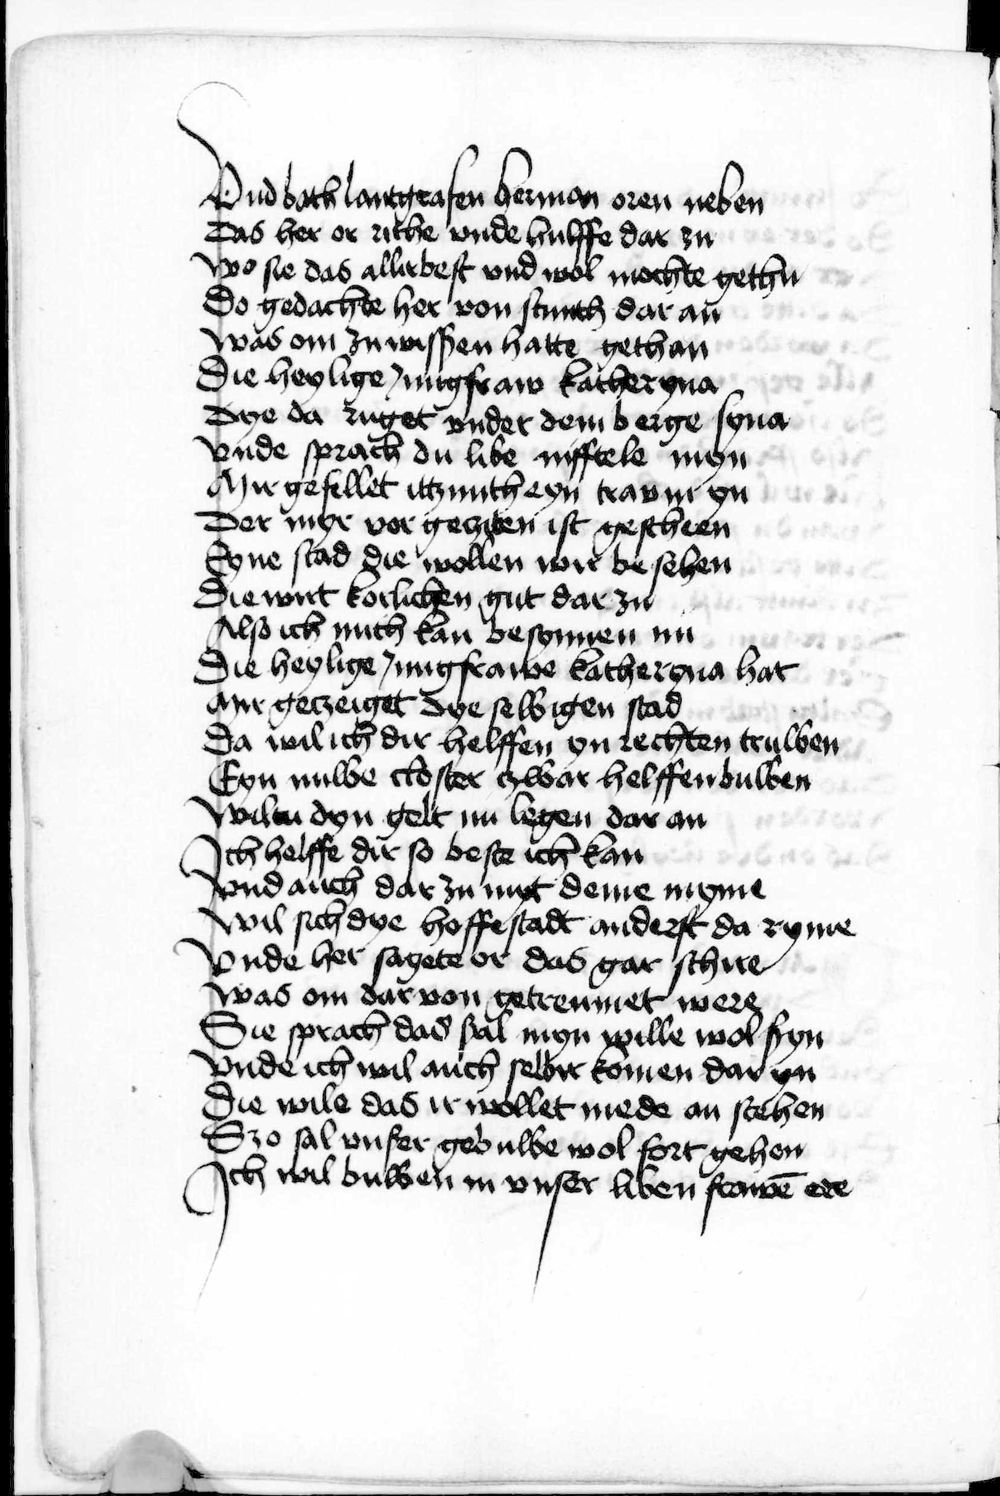 Vnd bath lantgrafen herman oren neben
Das her or rithe vnde hulffe dar zu
Wo sie das allirbest vnd wol mochte gethu
Do gedachte her von stunth dar an
Was om zu wissen hatte gethan
Die heylige jungfraw katheryna
Dye da ruget vnder dem berge syna
Vnde sprach du libe nifftele myn
Myr gefellet itzunth eyn traum yn
Der myr vor geziten ist gescheen
Eyne stad die wollen wir besehen
Die wirt korlichen gut dar zu
Also ich mich kan besynnen nu
Die heylige jungfrawe katheryna hat
Myr geczeiget dye selbigen stad
Da wil ich dir helffen yn rechten truwen
Eyn nuwe closter czwar helffen buwen
Wiltu dyn gelt nu legen dar an
Ich helffe dir so beste ich kan
Vnd auch dar zu myt deme myme
Wil sich dye hoffestadt anderst da ryme
Vnde her sagete or das gar schire
Was om dar von getreumet were
Sie sprach das sal myn wille wol syn
Vnde ich wil auch selbir komen dar yn
Die wile das ir wollet mede an stehen
Szo sal vnser gebuwe wol fort gehen
Ich wil buwen in vnser liben frawē ere